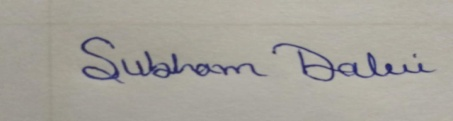 Subham Dalui